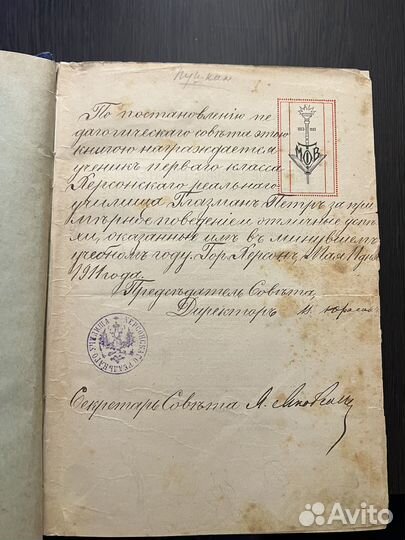 Пушкин
По постановленію пе
дагогическаго совѣта этою
книгою награждается
ученик перваго класса
Херсонскаго реальнаго
училища Глазман Петръ за при
мѣрное поведеніе и отличные успѣ
хи, оказанные имъ въ минувшемъ
учебномъ году. Гор. Херсонъ, Мая 11 дня
1911 года.
МФВ
Предсѣдатель Совѣта,
Директоръ
ХЕРСОНСКАГО РЕАЛЬНАГО УЧИЛИЩА
Секретарь Совѣта
Avito